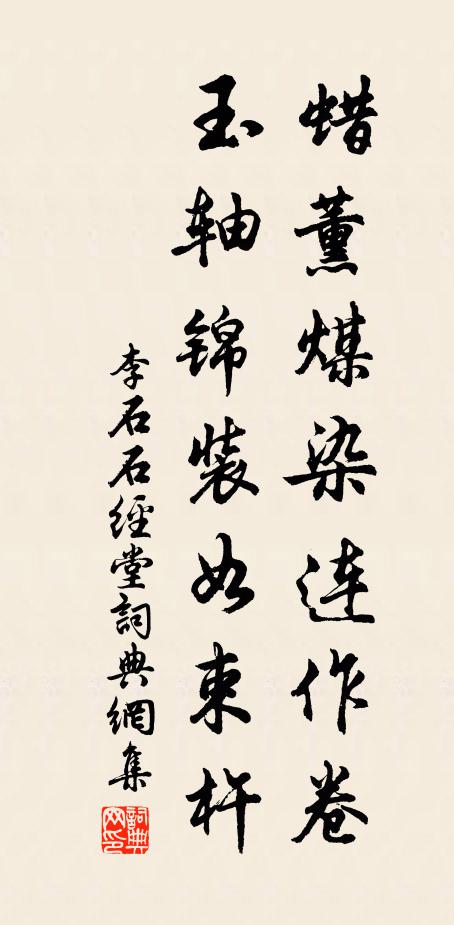 蜡薰煤染连作卷
玉轴锦装如束杵
李石石經堂詞典網集
詞典网印